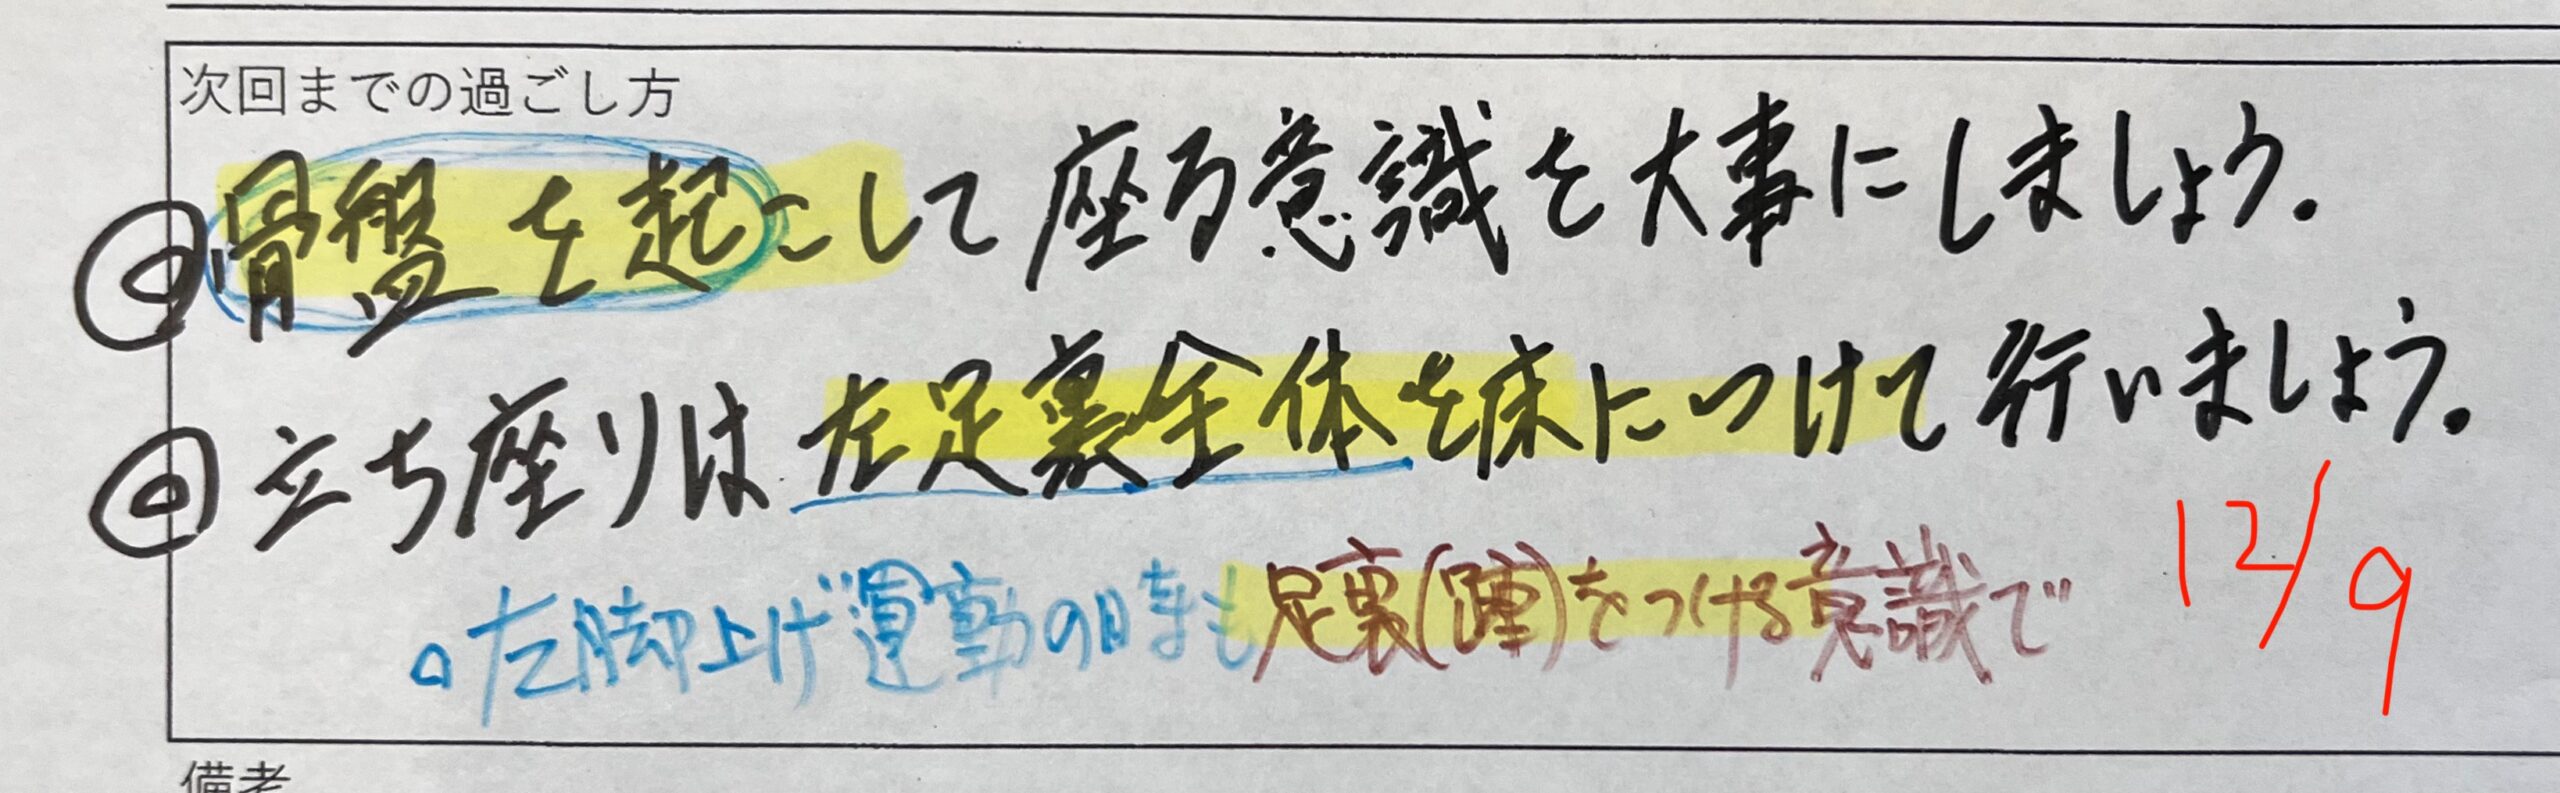 次回までの過ごし方
◎骨盤を起こして座る意識を大事にしましょう.
◎立ち座りは左足裏全体を床につけて行いましょう.
。左脚上げ運動の時も足裏(踵)をつける意識で
12/9
備考